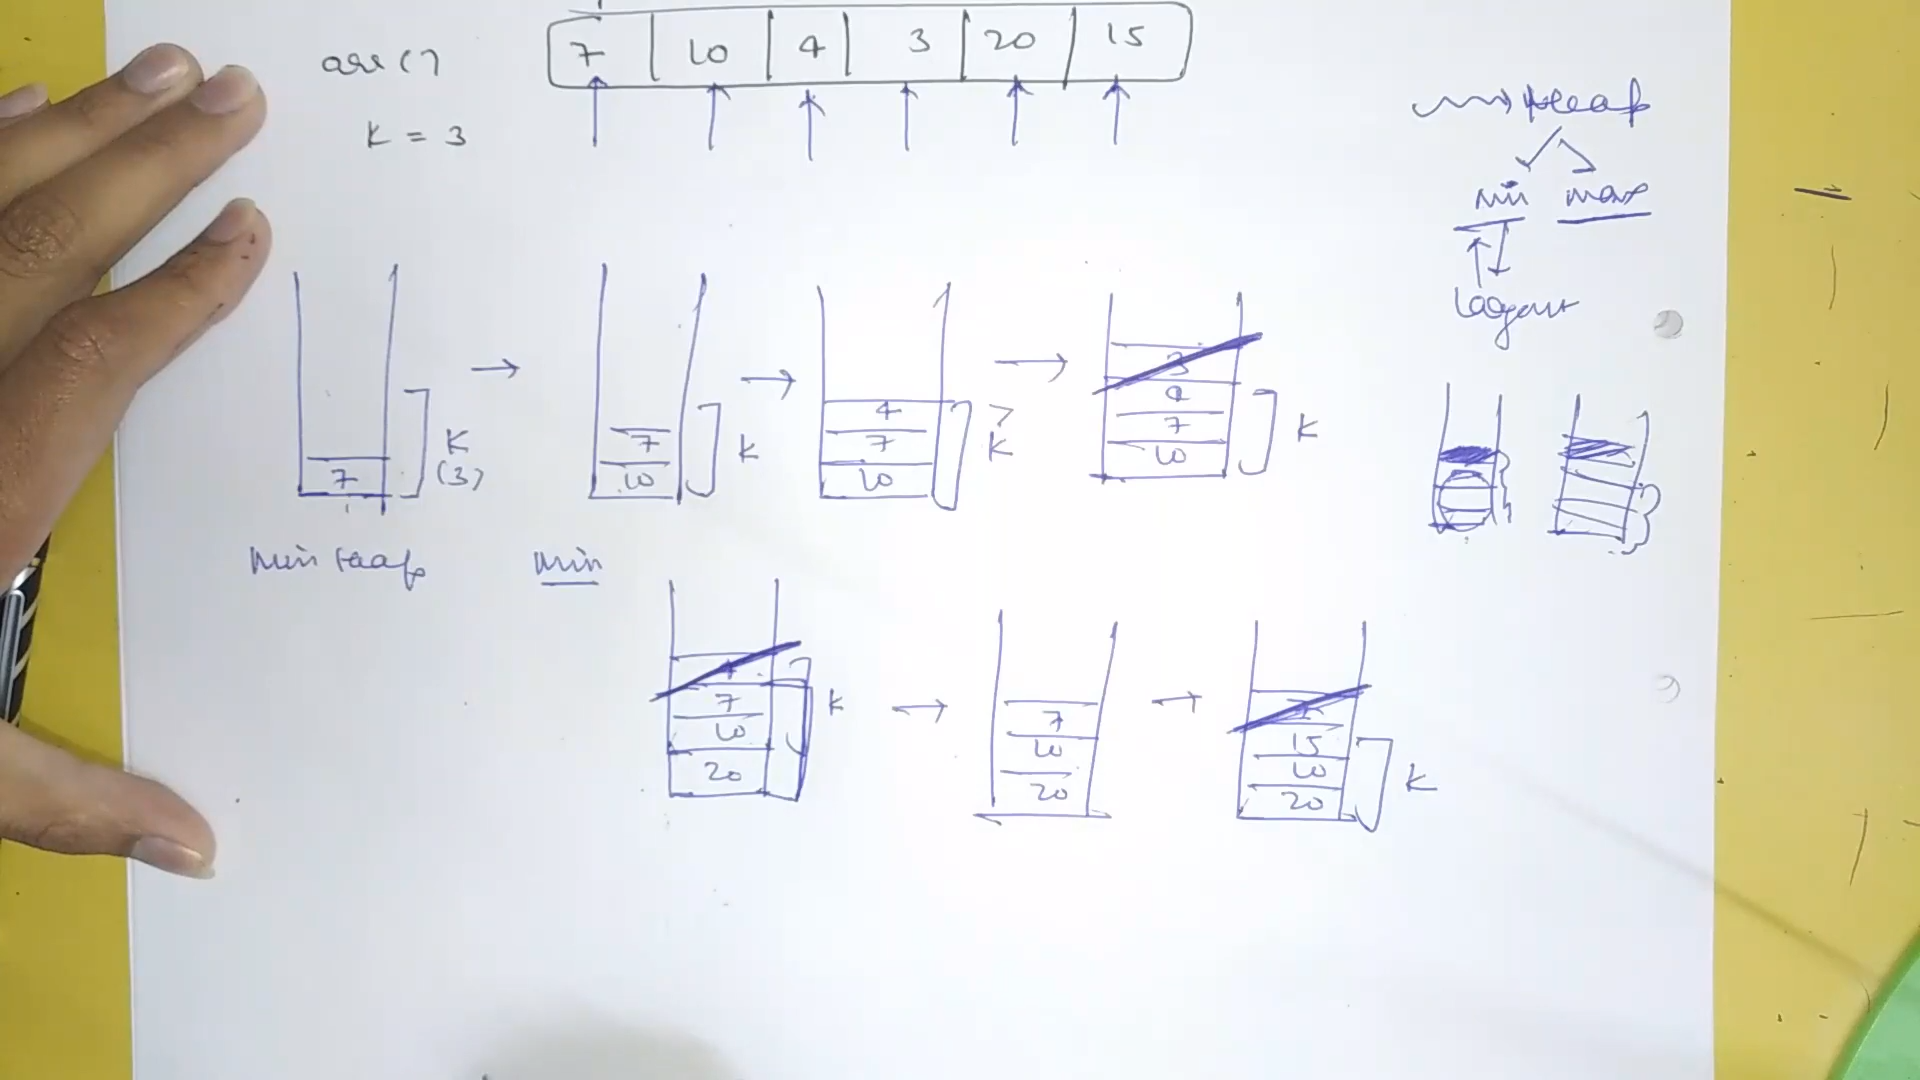 7 10 4 3 20 15
arr()
K = 3
Heap
min max
7
K
(3)
7
10
K
4
7
10
>
K
3
4
7
10
K
Min Heap
min
4
7
10
20
K
7
10
20
15
10
20
K